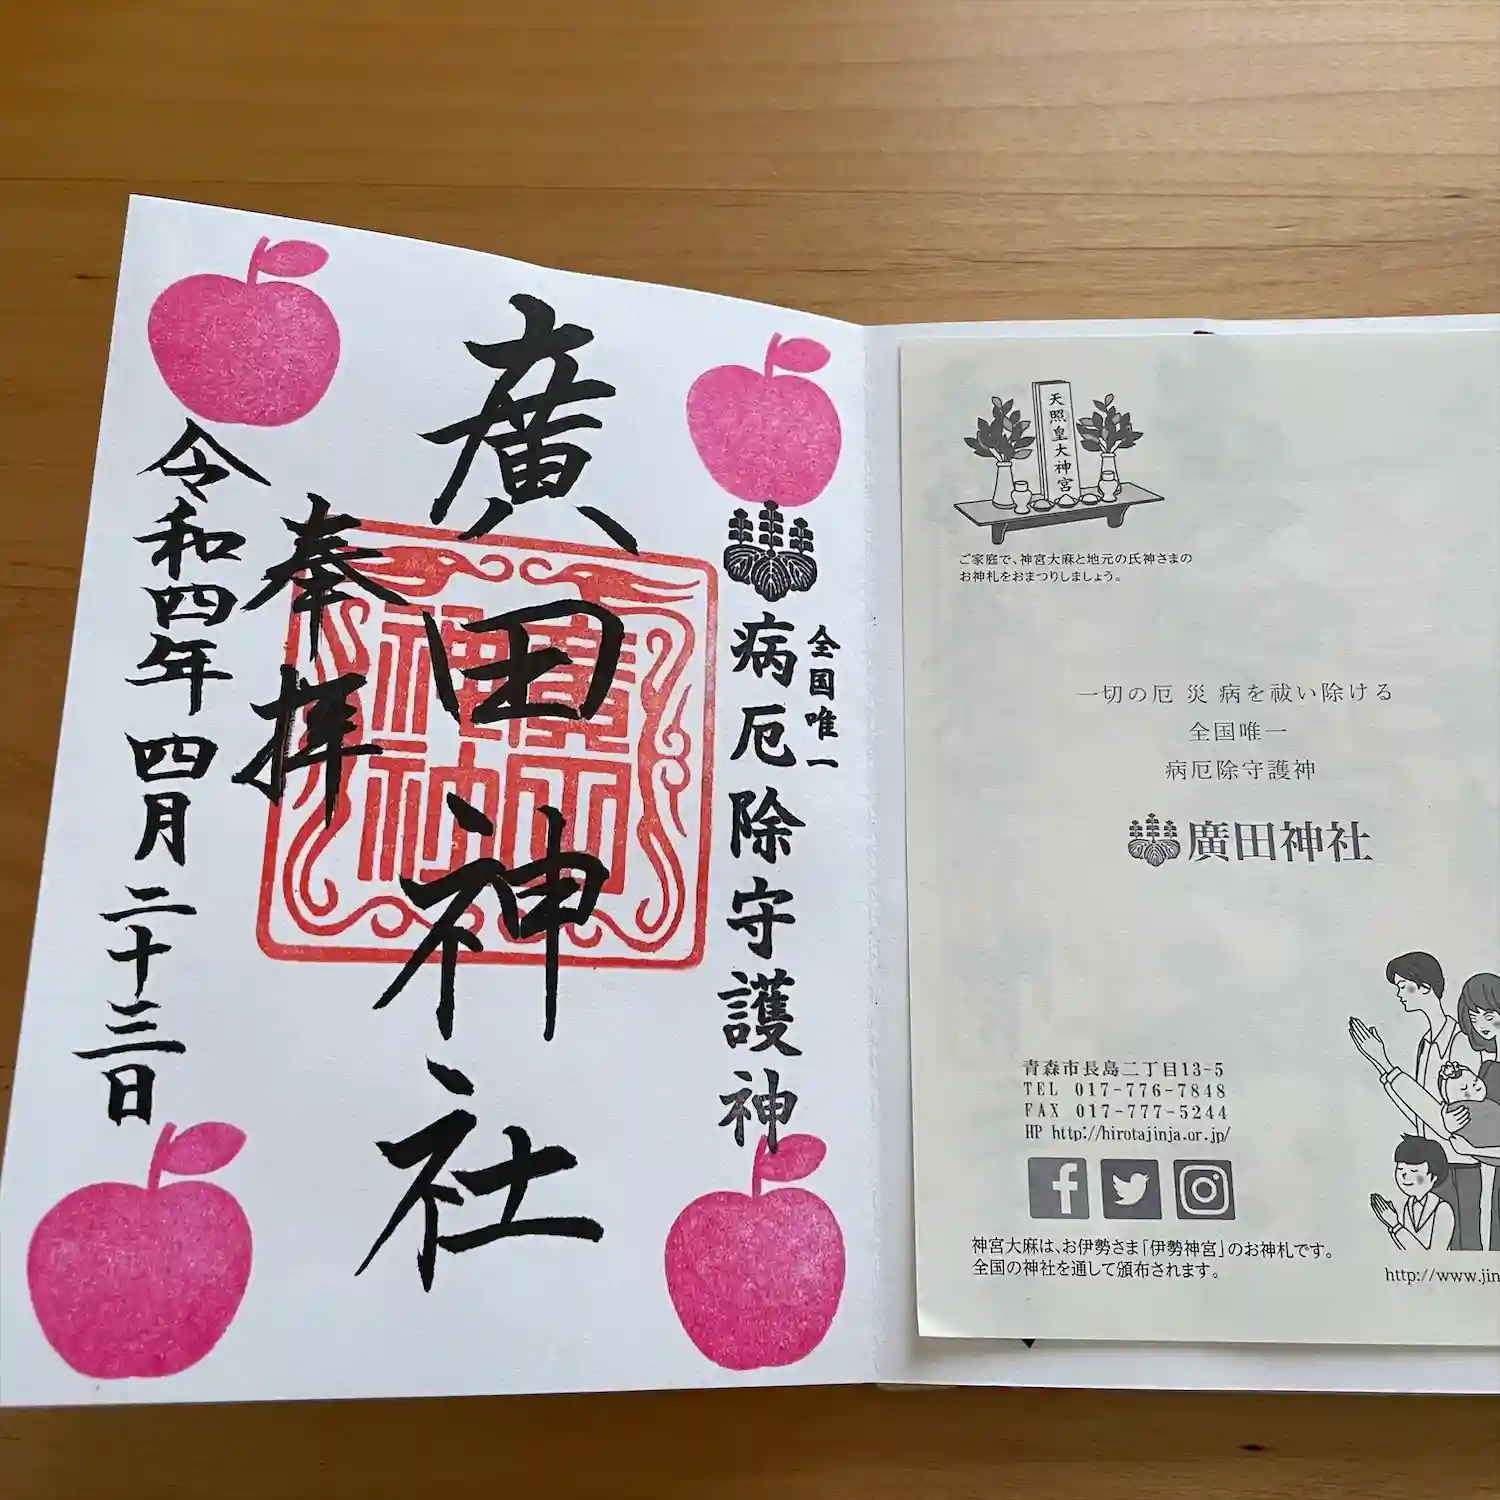 全国唯一
病厄除守護神
廣田神社
奉拝
令和四年 四月 二十三日
天照皇大神宮
ご家庭で、神宮大麻と地元の氏神さまの
お神札をおまつりしましょう。
一切の厄 災 病を祓い除ける
全国唯一
病厄除守護神
廣田神社
青森市長島二丁目13-5
TEL 017-776-7848
FAX 017-777-5244
HP http://hirotajinja.or.jp/
神宮大麻は、お伊勢さま「伊勢神宮」のお神札です。
全国の神社を通して頒布されます。
http://www.jin